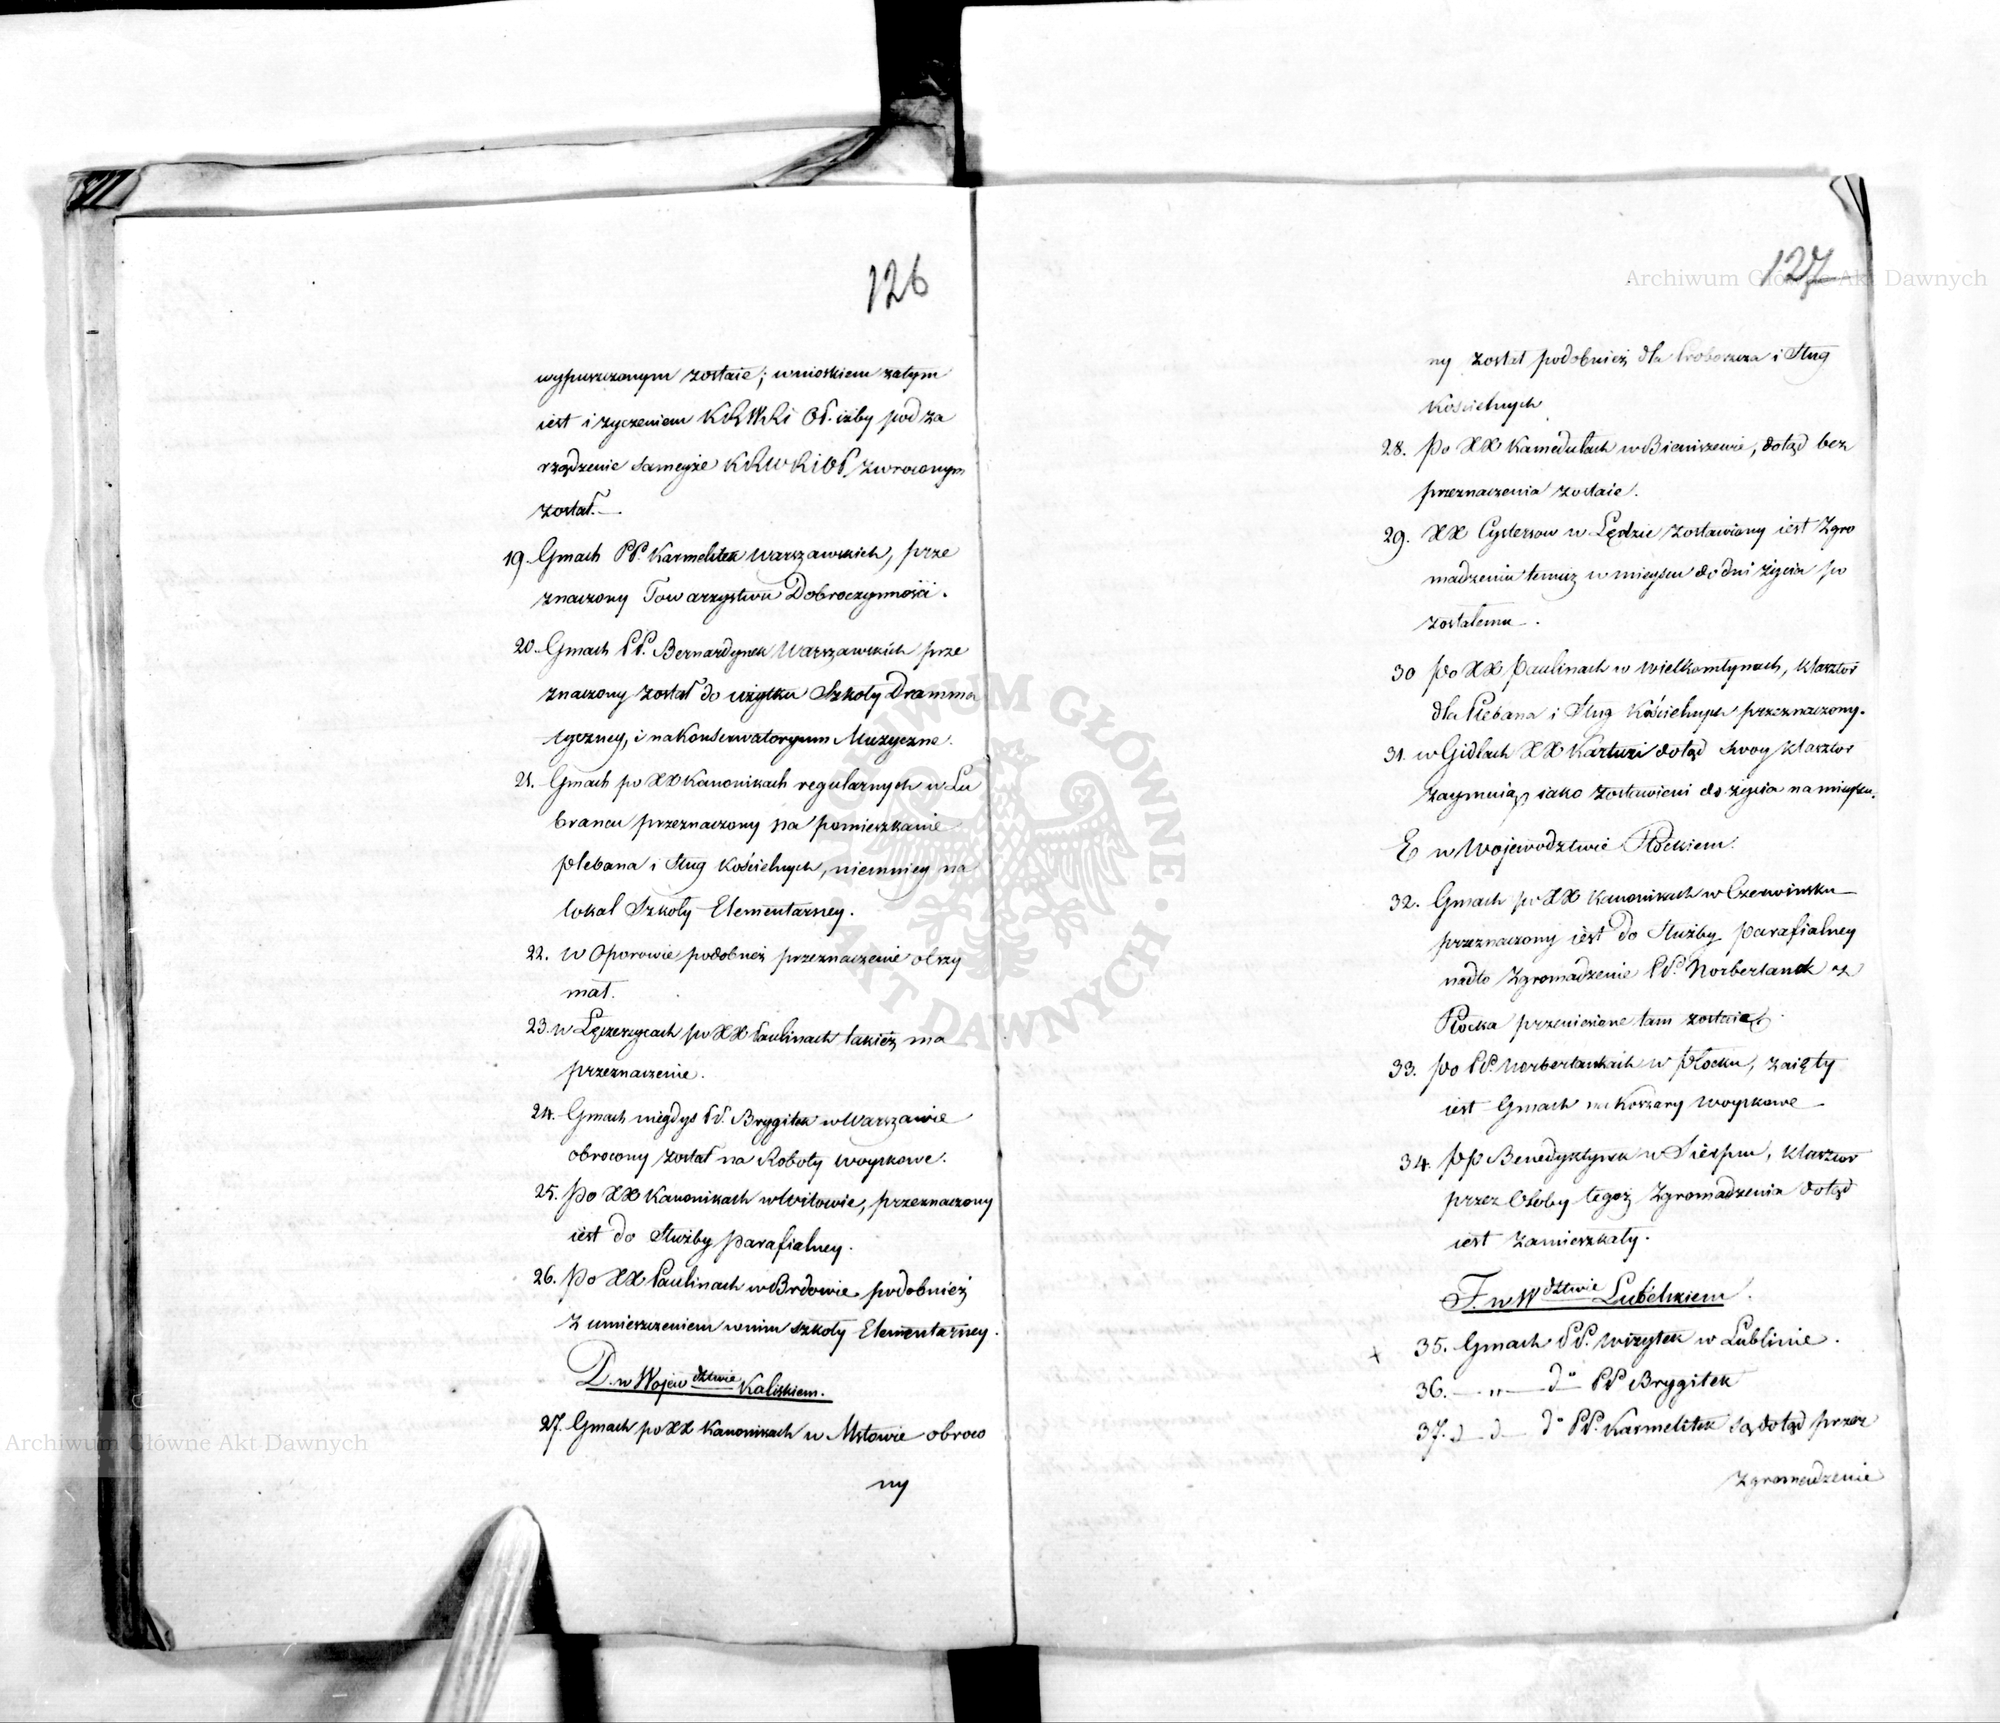 126
wypuszczonym zostaie; wnioskiem zatym
iest i życzeniem KRWRi OP. iżby pod za
rządzenie samejże KRWRiOP, zwroconym
został.—
19. Gmach PP. Karmelitek Warszawskich, prze
znaczony Towarzystwu Dobroczynności.
20. Gmach PP. Bernardynek Warszawskich prze
znaczony został do użytku Szkoły Dramma
tyczney, i na Konserwatoryum Muzyczne.
21. Gmach po XX Kanonikach regularnych w Lu
brancu przeznaczony na pomieszkanie
plebana i Sług Kościelnych, niemniey na
lokal Szkoły Elementarney.
22. w Oporowie podobnież przeznaczenie otrzy
mał.
23. w Łęczeszycach po XX Paulinach takież ma
przeznaczenie.
24. Gmach niegdyś PP. Brygitek w Warszawie
obrocony został na Roboty woyskowe.
25. Po XX Kanonikach w Witowie, przeznaczony
iest do Służby parafialney.
26. Po XX Paulinach w Brdowie podobnież
z umieszczeniem w nim szkoły Elementarney.
D. w Wojewdztwie Kaliskiem.
27. Gmach po XX Kanonikach w Mstowie obroco
ny
127
ny został podobnież dla Proboszcza i Sług
Kościelnych
28. Po XX Kamedułach w Bieniszewie, dotąd bez
przeznaczenia zostaie.
29. XX Cystersow w Lędzie zostawiony iest Zgro
madzeniu temuż w mieyscu do dni życia po
zostałemu.
30 Po XX Paulinach w Wielkomłynach, klasztor
dla Plebana i Sług Kościelnych przeznaczony.
31. w Gidlach XX Kartuzi dotąd swoy klasztor
zaymuią, iako zostawieni do życia na mieyscu.
E w Wojewodztwie Płockiem.
32. Gmach po XX Kanonikach w Czerwinsku
przeznaczony iest do Służby parafialney
nadto Zgromadzenie PP. Norbertanek z
Płocka przeniesione tam zostaie.
33. Po PP. Norbertankach w Płocku, zaięty
iest Gmach na Koszary woyskowe
34. PP Benedyktynek w Sierpcu, klasztor
przez Osoby tegoż Zgromadzenia dotąd
iest zamieszkały.
F. w Wdztwie Lubelskiem.
35. Gmach PP. Wizytek w Lublinie.
36. — „ — do PP Brygitek
37. d — d — do PP. Karmelitek są dotąd przez
Zgromadzenie
ARCHIWUM GŁÓWNE AKT DAWNYCH
Archiwum Główne Akt Dawnych
Archiwum Główne Akt Dawnych